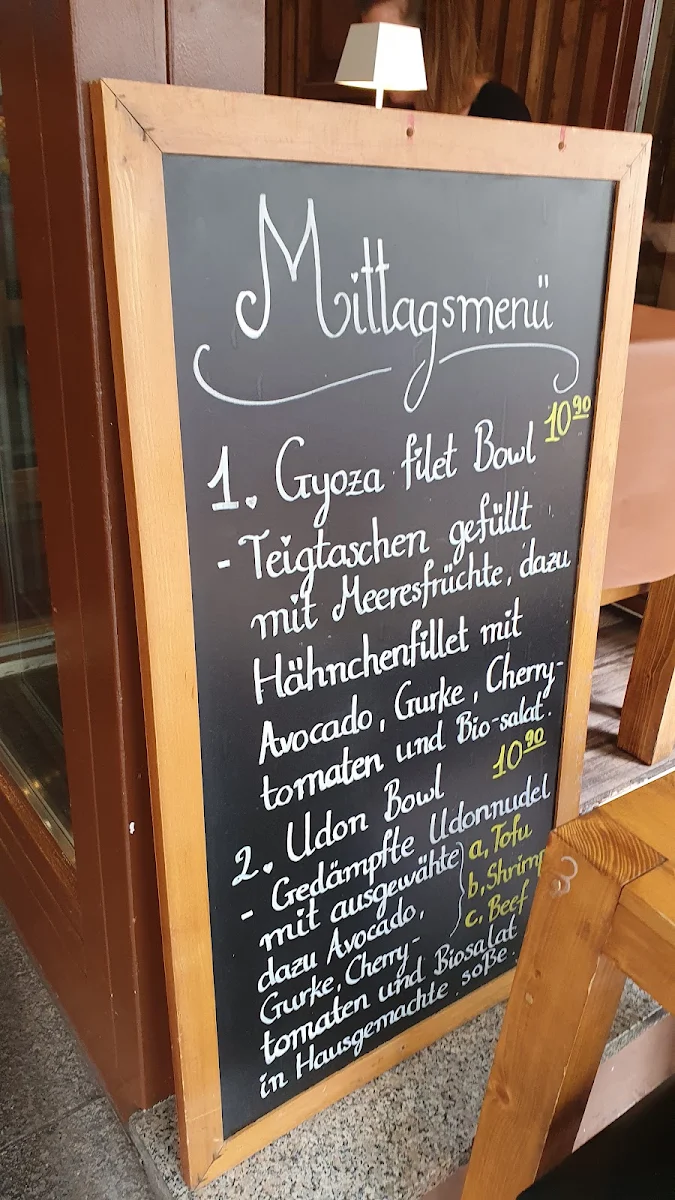 Mittagsmenü
1. Gyoza filet Bowl 10⁹⁰
- Teigtaschen gefüllt
mit Meeresfrüchte, dazu
Hähnchenfillet mit
Avocado, Gurke, Cherry-
tomaten und Bio-salat.
2. Udon Bowl 10⁹⁰
- Gedämpfte Udonnudel
mit ausgewähte a, Tofu
b, Shrimp
dazu Avocado, c, Beef
Gurke, Cherry-
tomaten und Biosalat
in Hausgemachte soße.